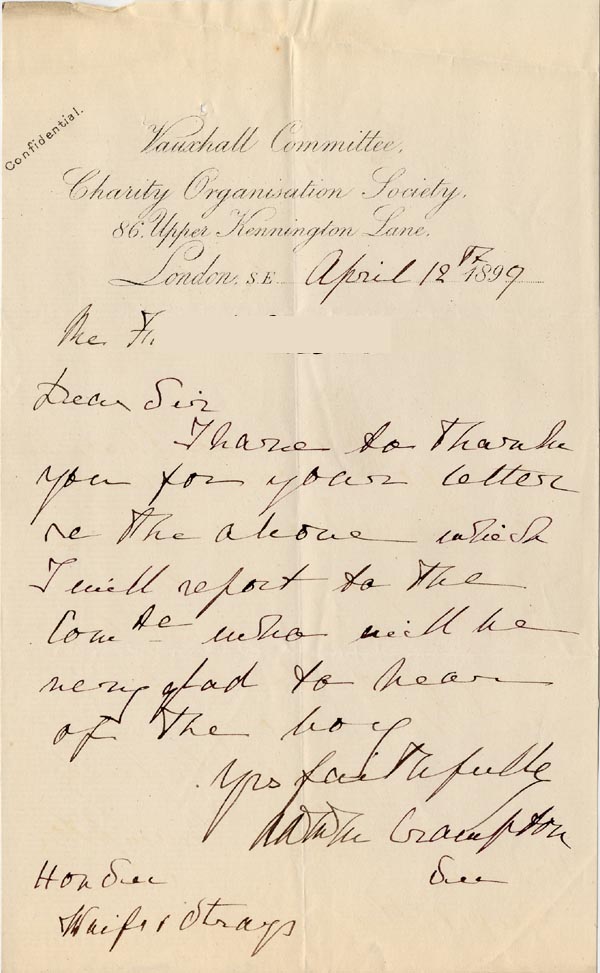 Confidential.
Vauxhall Committee,
Charity Organisation Society,
86, Upper Kennington Lane,
London, S.E. April 12th 1899
re F.
Dear Sir
I have to thank
you for your letter
re the above which
I will report to the
Comtee who will be
very glad to hear
of the boy
Yrs faithfully
Crampton
Hon Sec Sec
Waifs & Strays